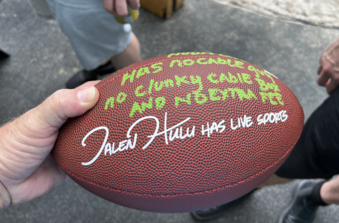 HAS NO CABLE
NO CLUNKY CABLE BOX
AND NO EXTRA FEE
JALEN HULU HAS LIVE SPORTS